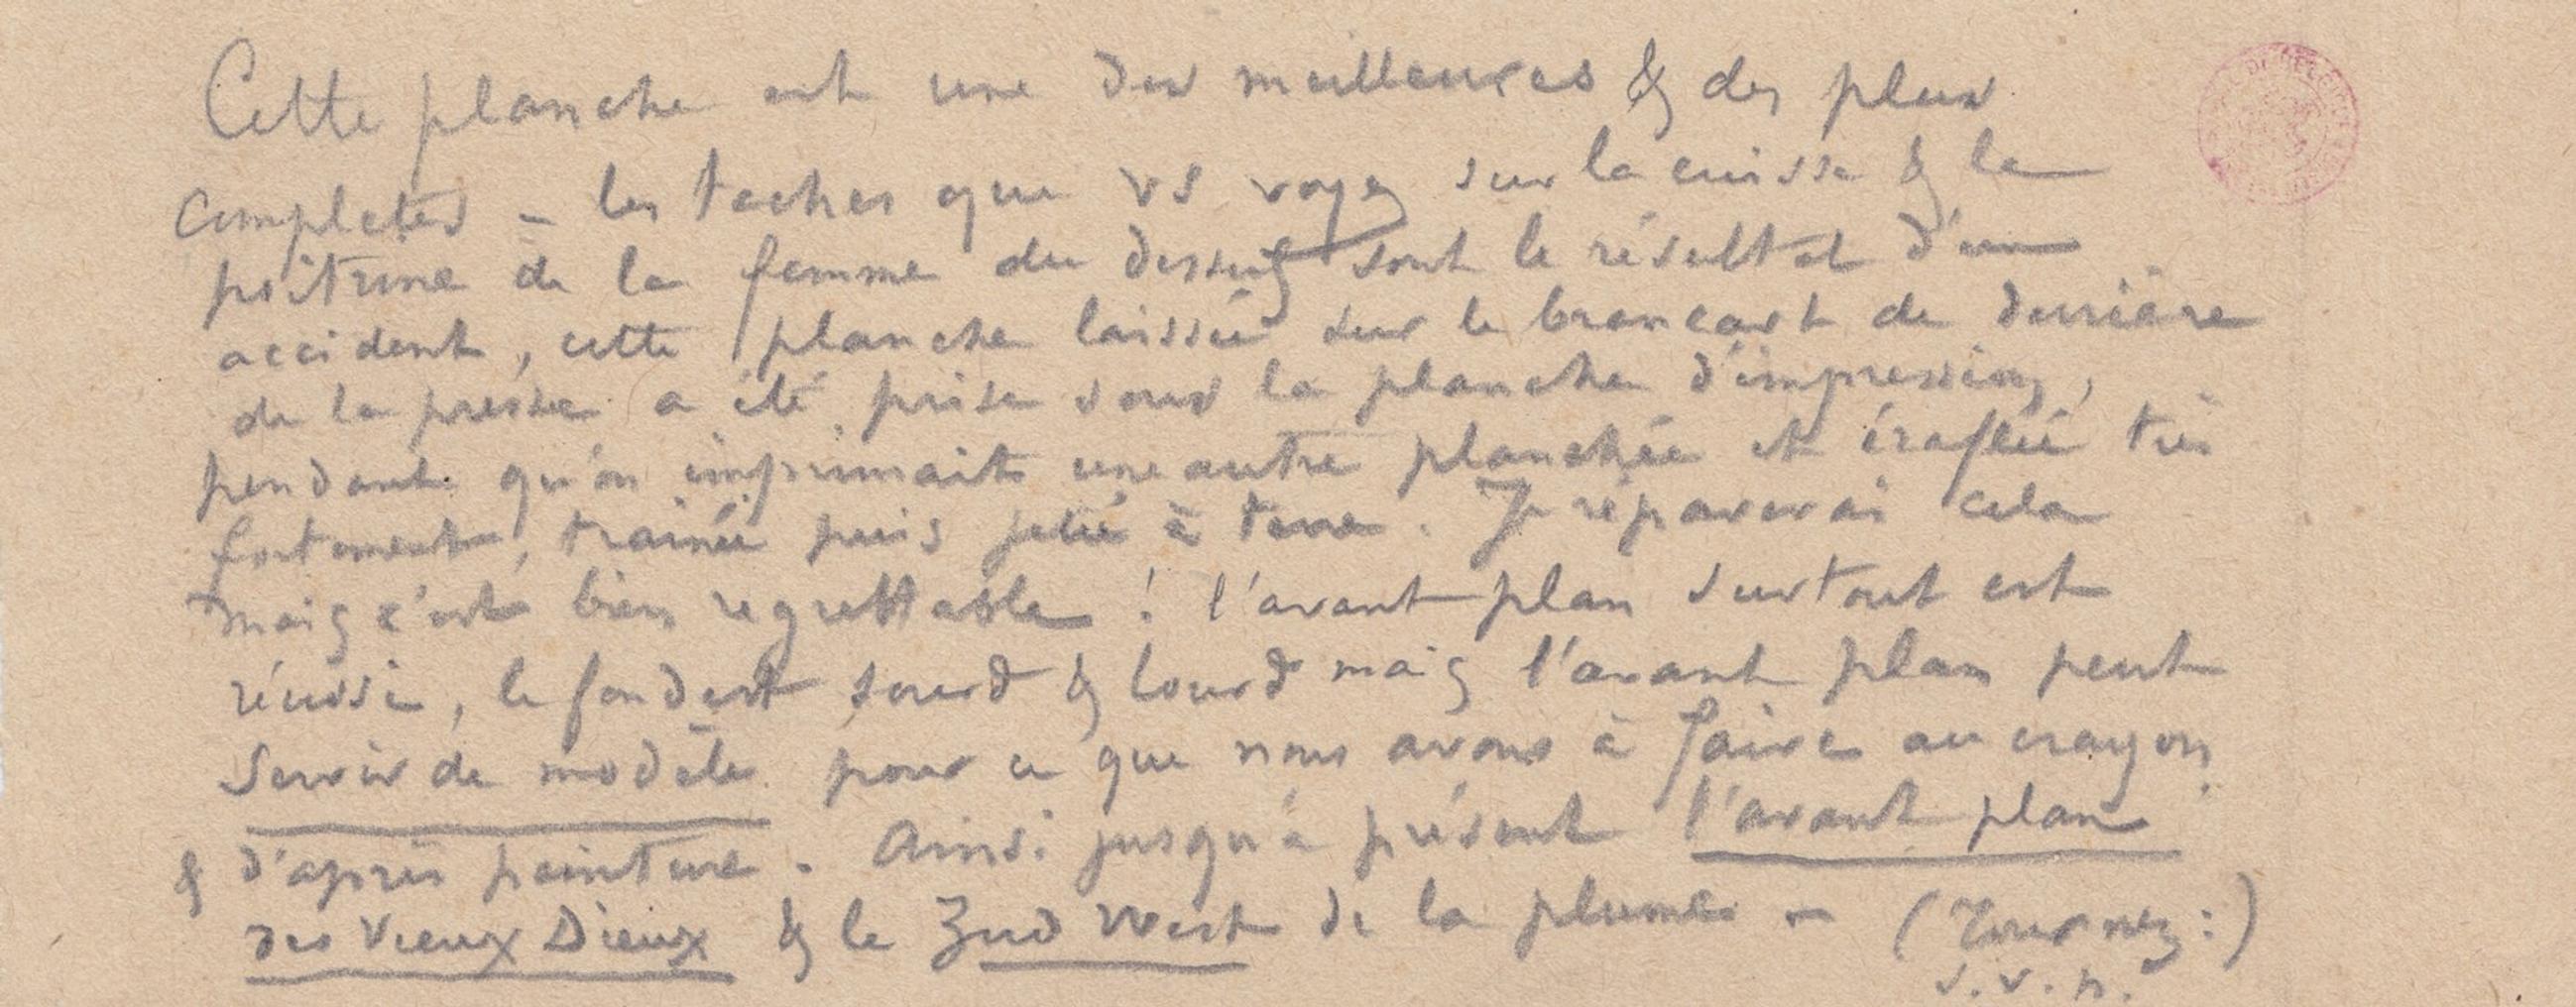 Cette planche est une des meilleures & des plus
completes – les taches que vs voyez sur la cuisse & la
poitrine de la femme du dessus sont le résultat d'un
accident, cette planche laissée sur le brancart de derrière
de la presse a été prise sous la planche d'impression,
pendant qu'on imprimait une autre planchée et éraflée très
fortement, trainée puis jetée à terre. Je réparerai cela
mais c'est bien regrettable ! l'avant plan surtout est
réussi, le fond est sourd & lourd mais l'avant plan peut
servir de modèle pour ce que nous avons à faire au crayon
& d'après peinture. Ainsi jusqu'à présent l'avant plan
des Vieux Dieux & le Zud West de la plume – (Tournez :)
s.v.p.